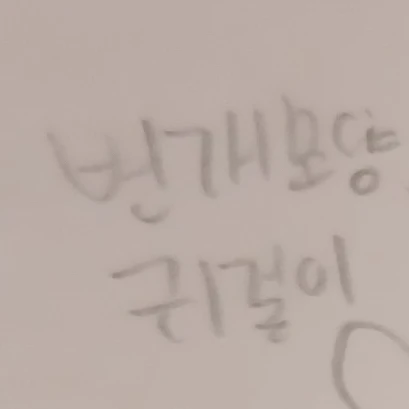 번개모양
귀걸이